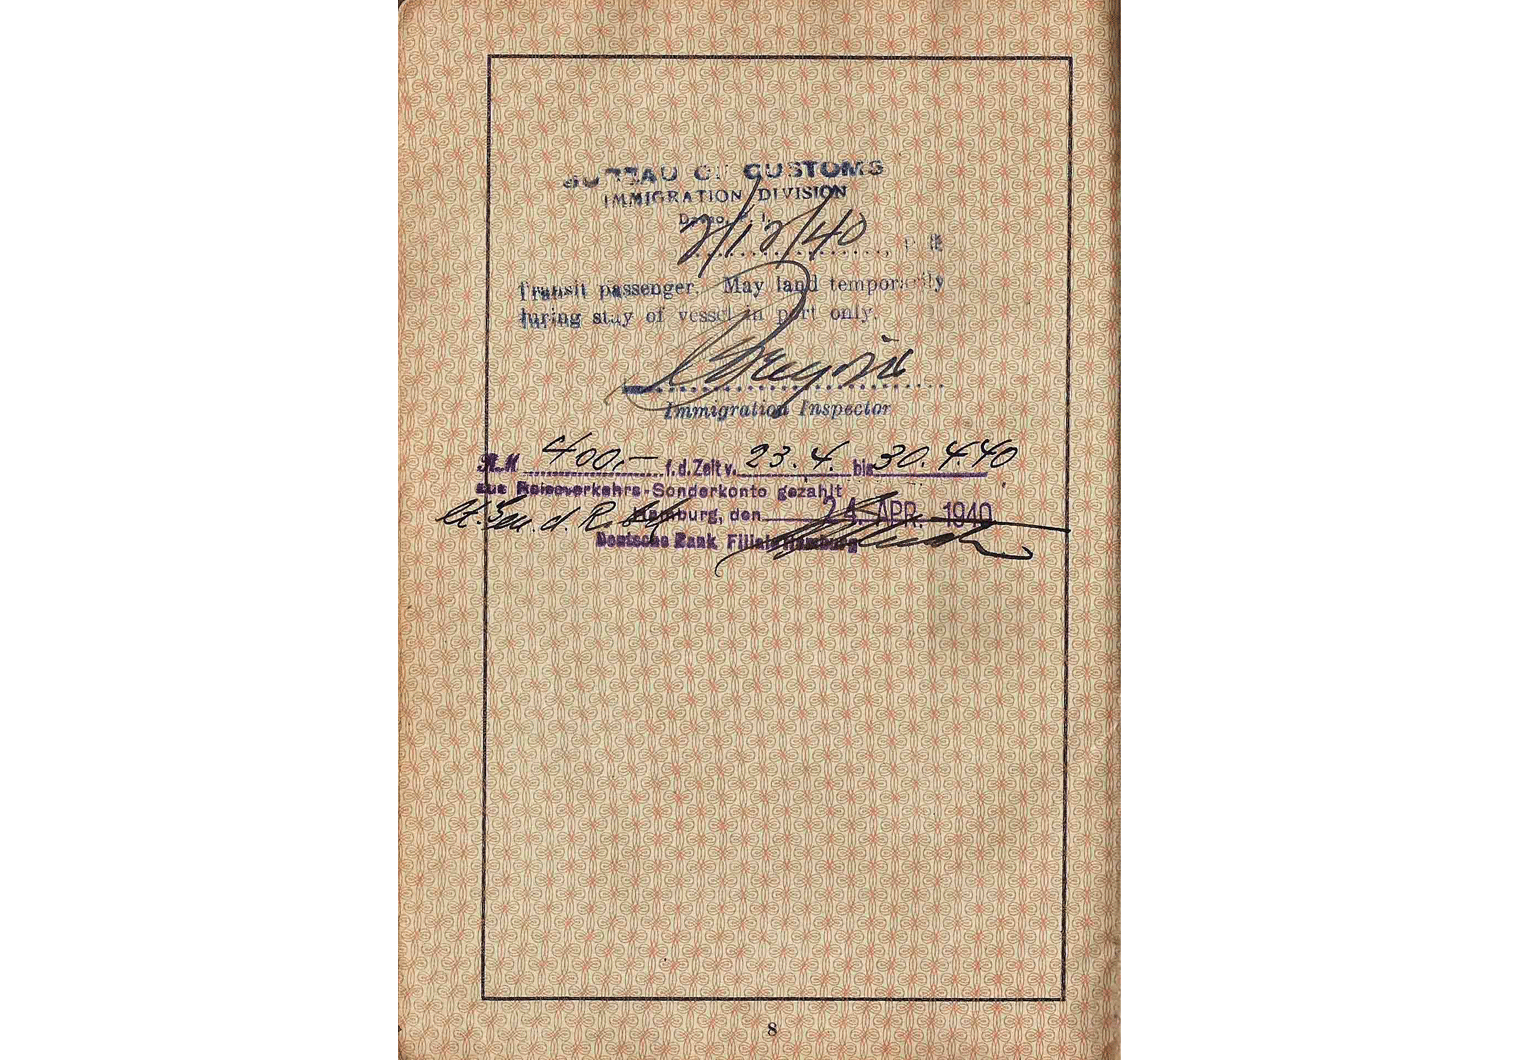 BUREAU OF CUSTOMS
IMMIGRATION DIVISION
Davao, P. I.
2/12/40
Transit passenger. May land temporarily
during stay of vessel in port only.
Immigration Inspector
RM 400,- f. d. Zeit v. 23.4. bis 30.4.40
aus Reiseverkehrs-Sonderkonto gezahlt
Hamburg, den 24. APR. 1940
Deutsche Bank Filiale Hamburg
8